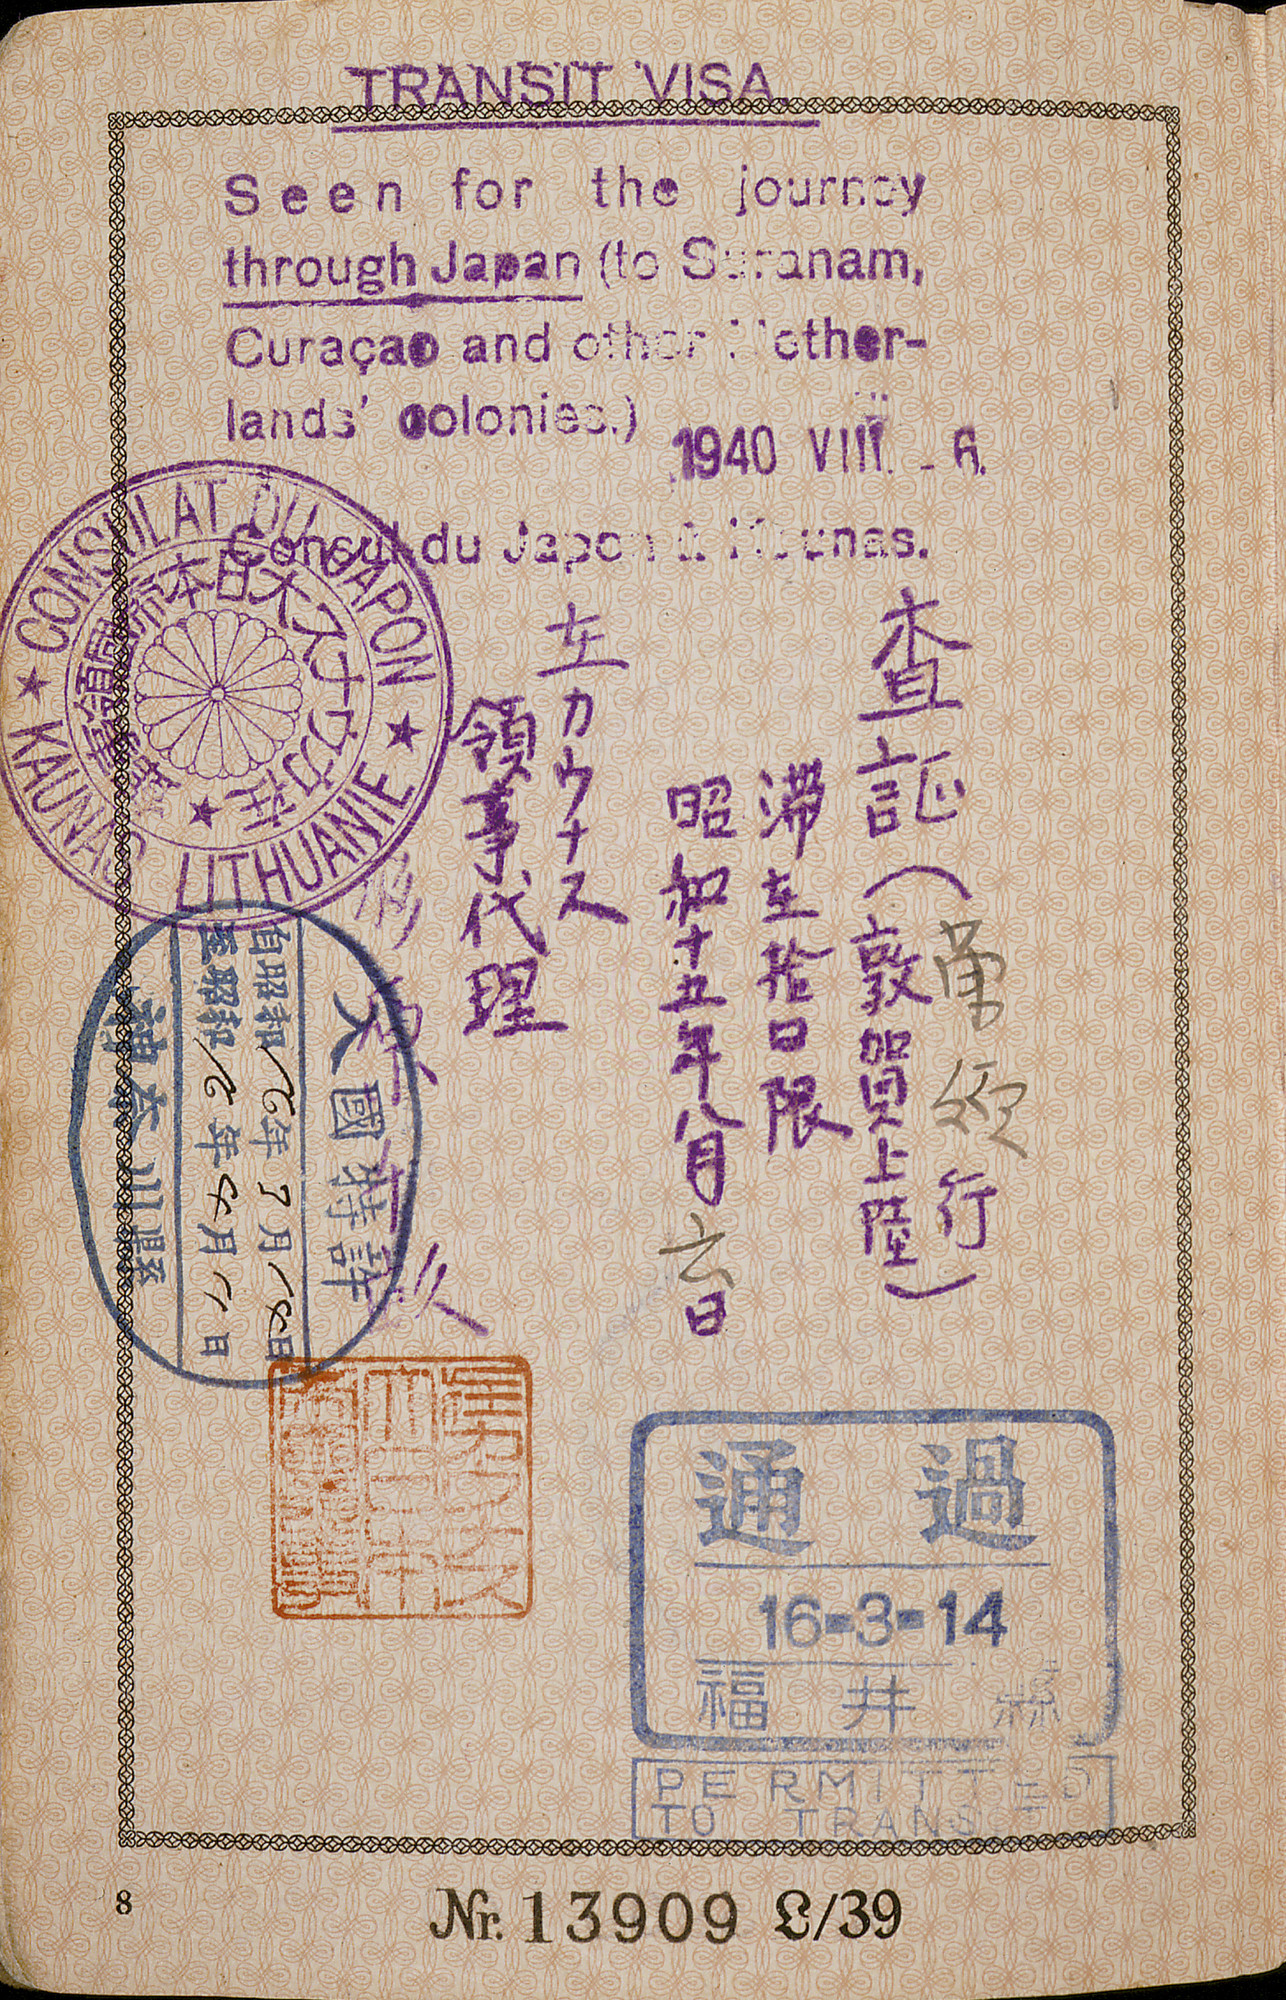 TRANSIT VISA.
Seen for the journey
through Japan (to Suranam,
Curaçao and other Nether-
lands' colonies.)
1940 VIII. - 6.
Consul du Japon à Kaunas.
CONSULAT DU JAPON
KAUNAS LITHUANIE
在カウナス大日本帝國領事館
査証(敦賀上陸)
行
滞在拾日限
昭和十五年八月六日
在カウナス
領事代理
入國特許
自昭和16年3月14日
至昭和16年
神奈川縣
通過
16-3-14
福井縣
PERMITTED
TO TRANS
8
Nr. 13909 L/39